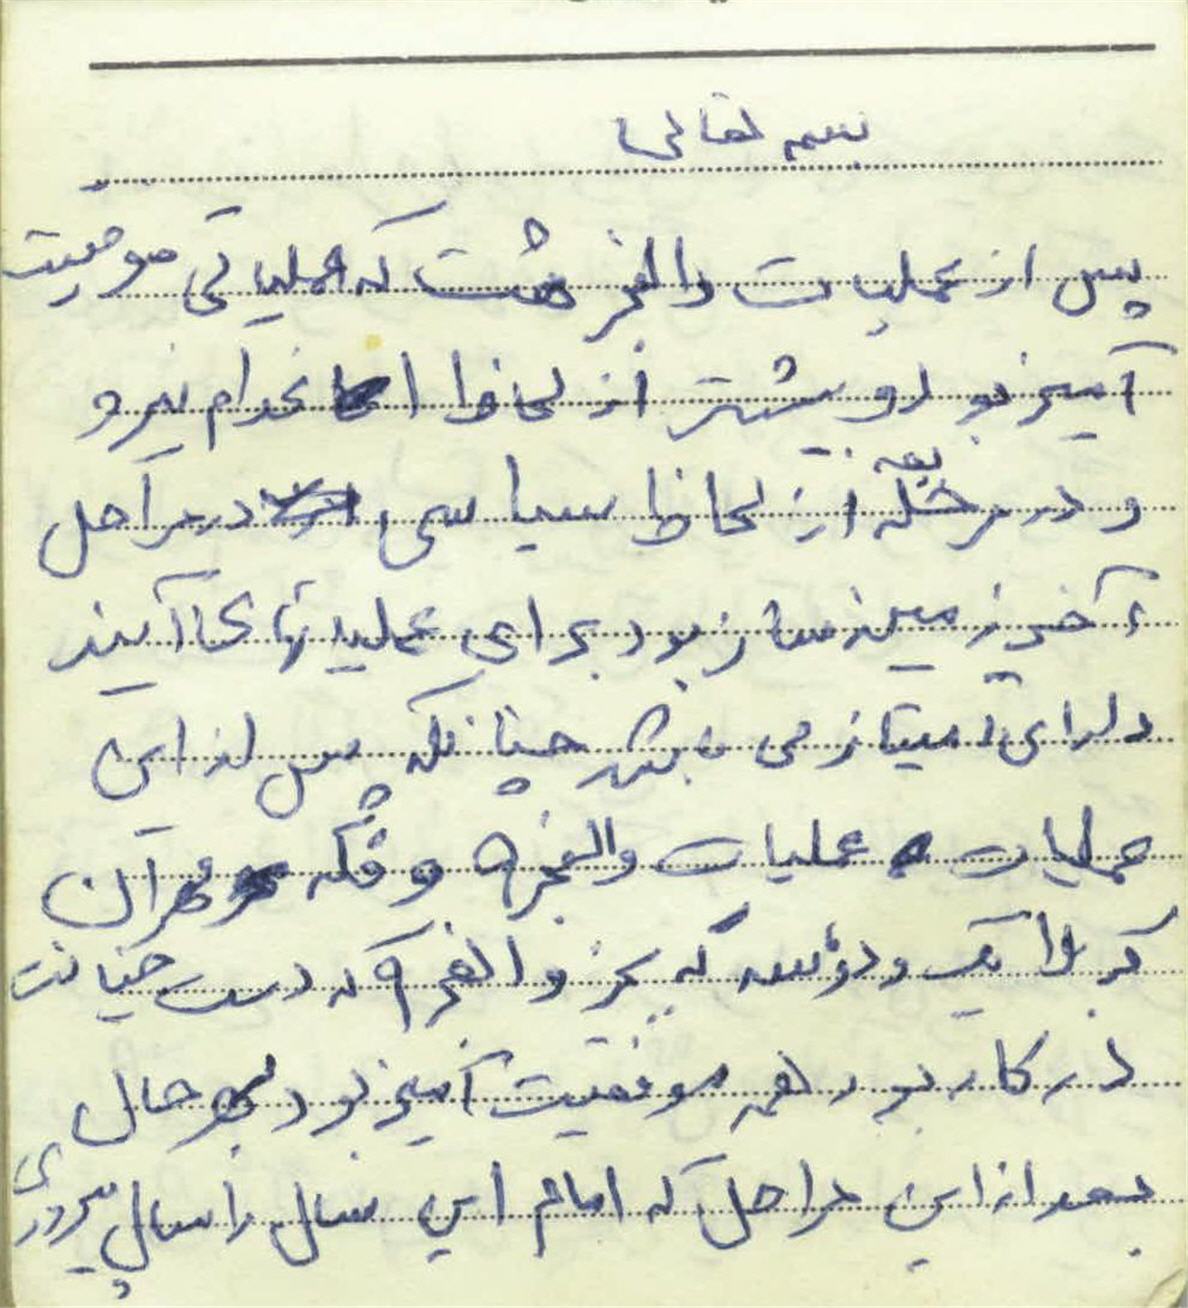 بسمه تعالی
پس از عملیات والفجر هشت که عملیاتی موفقیت
آمیز بود و بیشتر از لحاظ انهدام نیرو
و در مرحله بعد از لحاظ سیاسی در مراحل
آخر زمینه ساز بود برای عملیاتهای آینده
دارای امتیاز می باشد چنانکه پس از این
عملیات عملیات والفجر ۹ و فکه و مهران
کربلا یک و دو و سه که بجز والفجر ۹ که دست خیانت
در کار بود همه موفقیت آمیز بود بهر حال
بعد از این مراحل که امام این سال را سال پیروزی